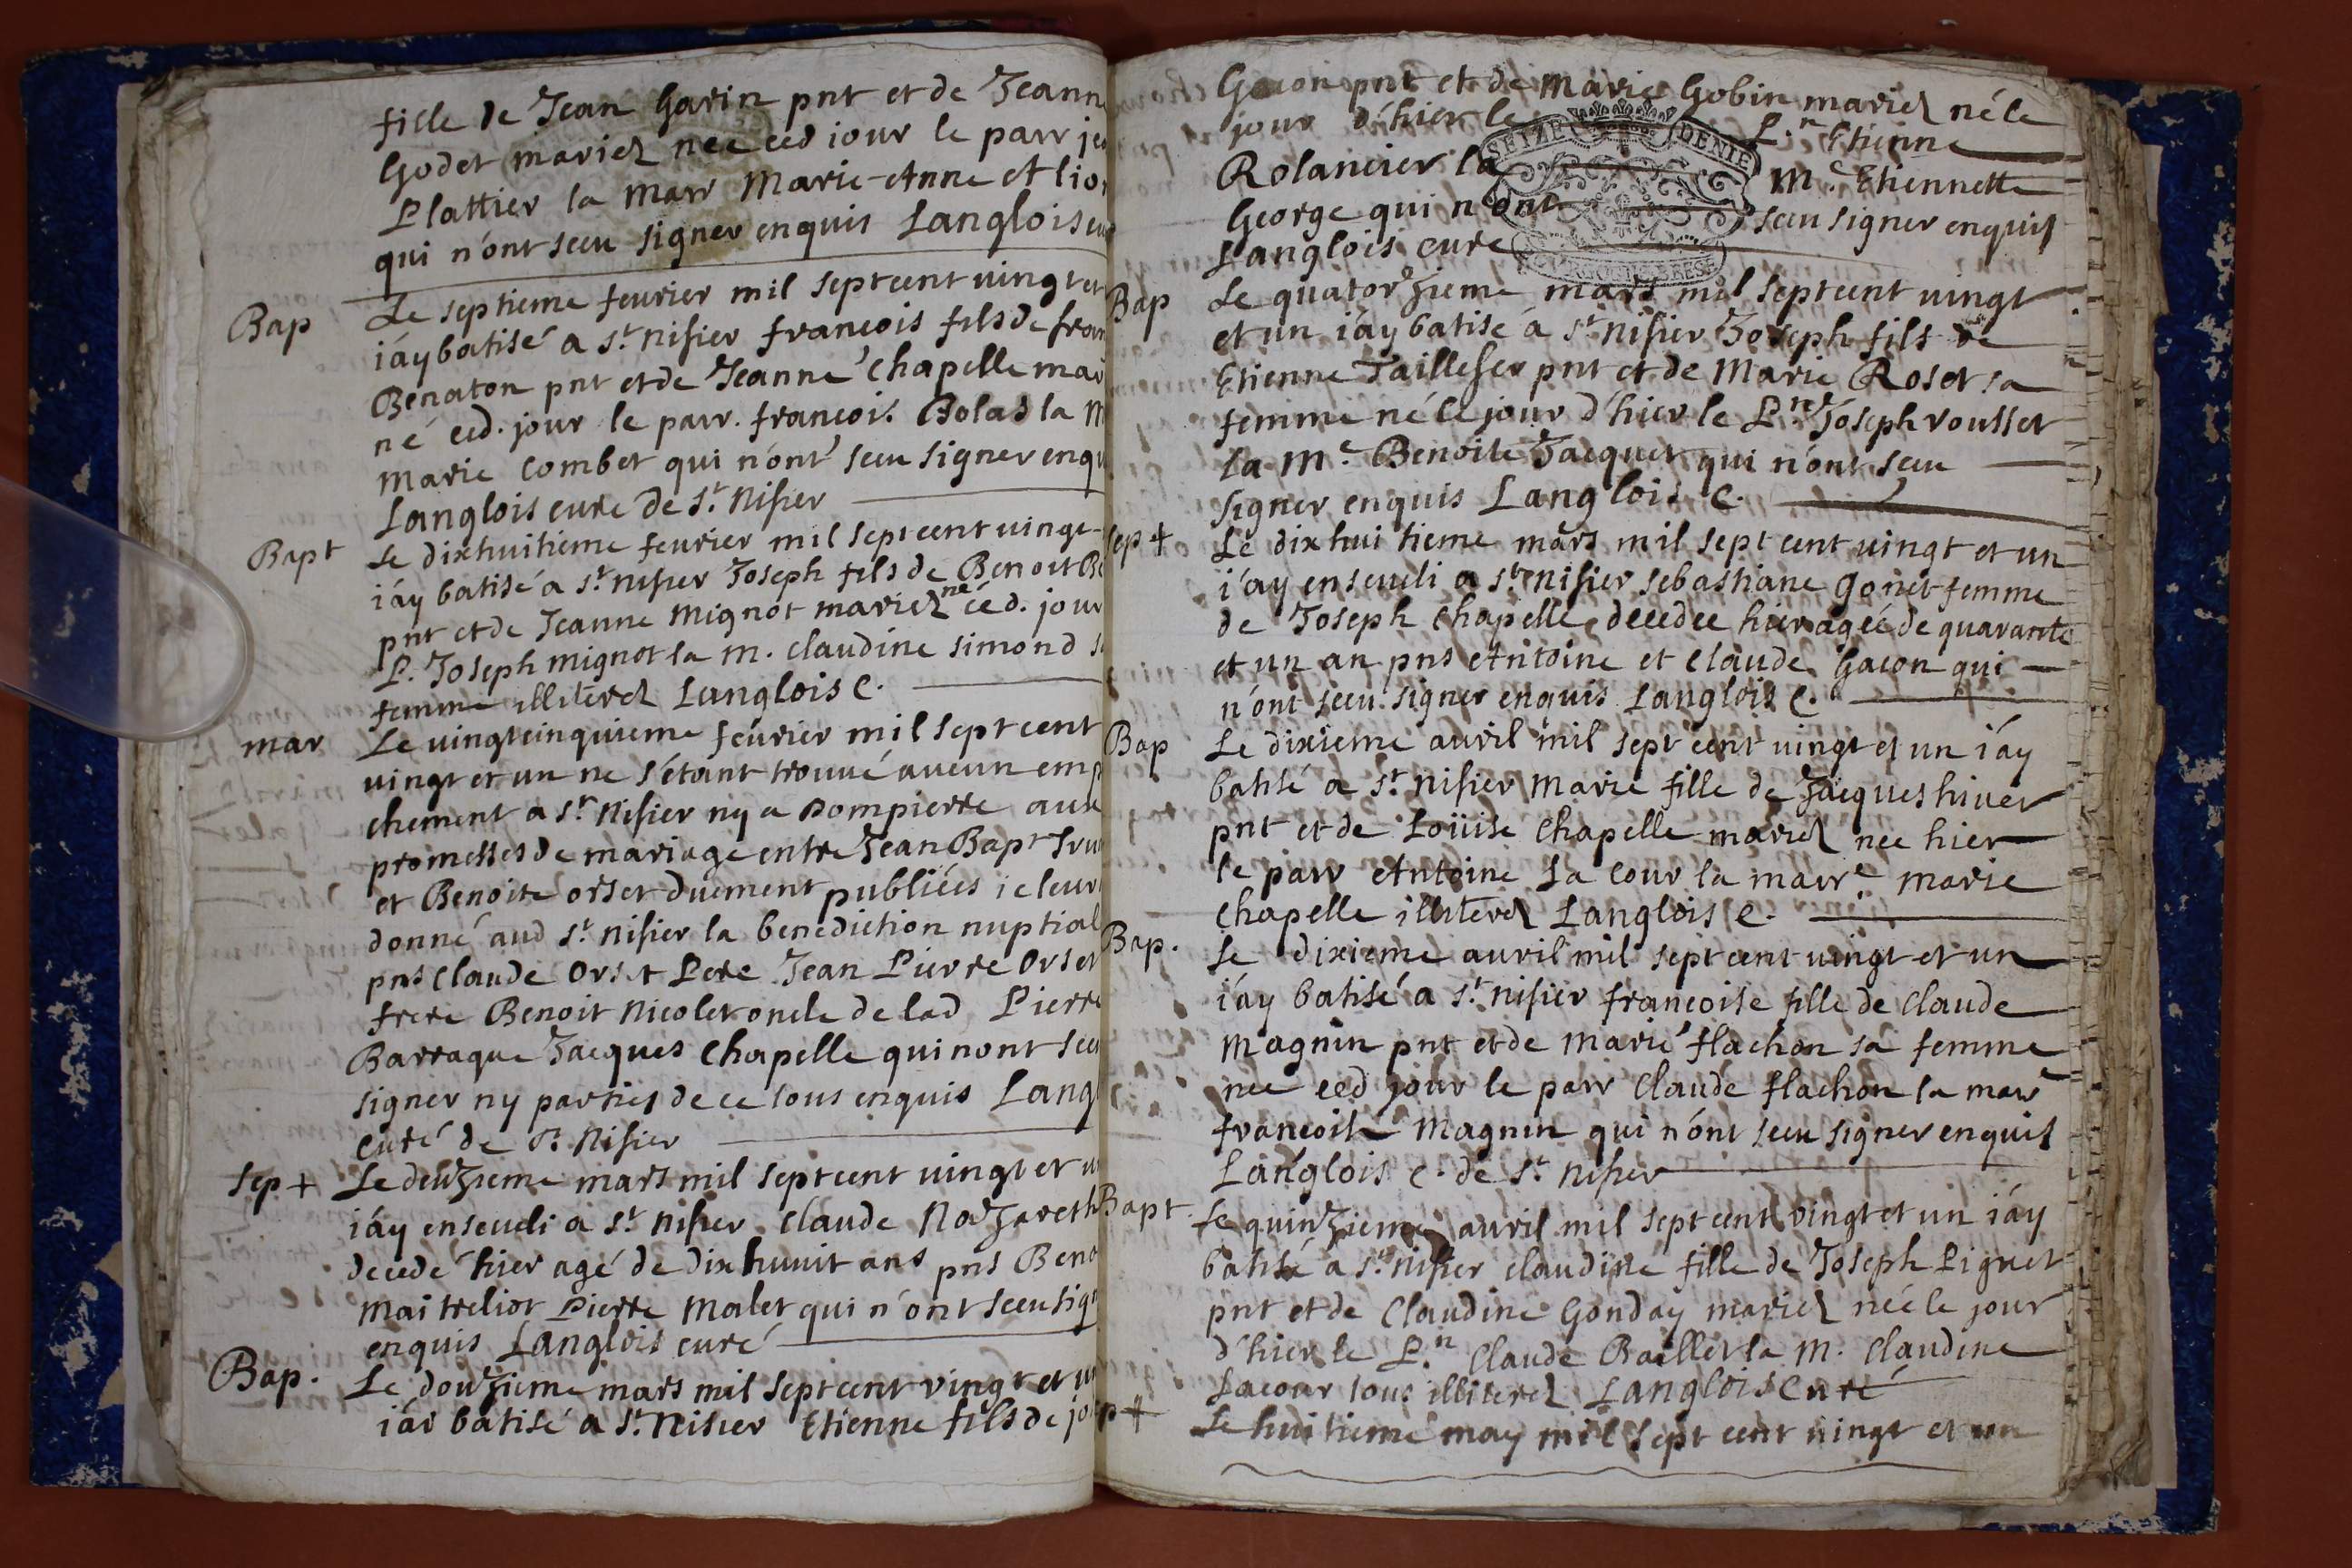 fille de Jean Garin pnt et de Jeann
Godet mariez nee ced iour le parr
Plattier la marr Marie-Anne et
qui n'ont sceu signer enquis Langlois
Bap
Le septieme feurier mil sept cent uingt et
i'ay batisé a St. Nisier francois fils de fran
Benaton pnt et de Jeanne Chapelle mar
né ced. jour le parr. francois Bolas la M
Marie Combet qui n'ont sceu signer enqu
Langlois curé de St. Nisier
Bapt
Le dixhuitieme feurier mil sept cent uingt
i'ay batisé a St. Nisier Joseph fils de Benoit Be
pnt et de Jeanne Mignot mariez né céd. jour
P. Joseph mignot la m. claudine simond s
femme illiterez Langlois C.
mar
Le uingtcinquieme feurier mil sept cent
uingt et un ne s'étant trouué aucun emp
chement a St. Nisier ny a Dompierre aux
promesses de mariage entre Jean Bapt
et Benoite orset duement publiées ie leur
donné aud St. Nisier la benediction nuptial
pns Claude Orset Pere Jean Pierre Orset
frere Benoit Nicolet oncle de lad Pierre
Barraque Jacques Chapelle qui nont sceu
signer ny parties de ce tous enquis Lang
Curé de St. Nisier
Sep +
Le deuzieme mars mil sept cent uingt et u
i'ay enseueli a St. Nisier Claude Nodzareth
decedé hier agé de dixhuuit ans pns Beno
Maitreliot Pierre Malet qui n'ont sceu sign
enquis Langlois curé
Bap.
Le douzieme mars mil sept cent vingt et u
i'ay batisé a St. Nisier Etienne fils de jo
Gacon pnt et de Marie Gobin mariez né le
jour d'hier le P.n Etienne
Rolancier la M.e Etiennette
George qui n'ont sceu signer enquis
Langlois curé
SEIZE DENIE
Bap
Le quatorzieme mars mil sept cent uingt
et un i'ay batisé a St. Nisier Joseph fils de
Etienne Taillefer pnt et de Marie Roset sa
femme né le jour d'hier le P.n Joseph rousset
la M.e Benoite Jacquet qui n'ont sceu
signer enquis Langlois C.
Sep +
Le dix huitieme mars mil sept cent uingt et un
i'ay enseueli a St. Nisier sebastiane gonet femme
de Joseph Chapelle decedee hier agéé de quarante
et un an pns Antoine et Claude Gacon qui
n'ont sceu signer enquis Langlois C.
Bap
Le dixieme auril mil sept cent uingt et un i'ay
batisé a St. Nisier Marie fille de Jacques hiuer
pnt et de Loüise Chapelle mariez nee hier
le parr Antoine La cour la marr.e marie
Chapelle illiterez Langlois C.
Bap.
Le dixieme auril mil sept cent uingt et un
i'ay batisé a St. Nisier francoise fille de Claude
Magnin pnt et de Marie flachon sa femme
nee ced jour le parr Claude flachon la marr
francoise Magnin qui n'ont sceu signer enquis
Langlois C. de St. Nisier
Bapt
Le quinzieme auril mil sept cent vingt et un i'ay
batisé a St. Nisier claudine fille de Joseph Piguet
pnt et de Claudine Gonday mariez néé le jour
d'hier le P.n Claude Baillet la M. Claudine
Lacour tous illiterez Langlois Curé
p +
Le huitieme may mil sept cent uingt et un